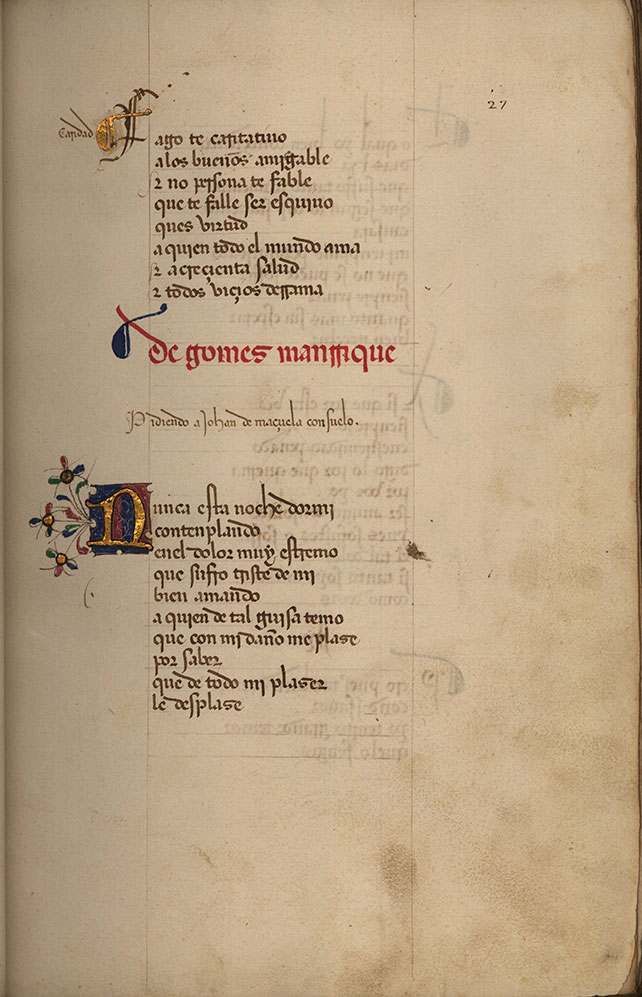 27
Caridad
Fago te caritatiuo
alos buenos amigable
⁊ no persona te fable
que te falle ser esquiuo
ques virtud
a quien todo el mundo ama
⁊ acreçienta salud
⁊ todos viçios derrama
De gomes manrrique
Pidiendo a Johan de maçuela consuelo.
Nunca esta noche dormi
contenplando
enel dolor muy estremo
que sufro triste de mi
bien amando
a quien de tal guisa temo
que con mi daño me plase
por saber
que de todo mi plaser
le desplase